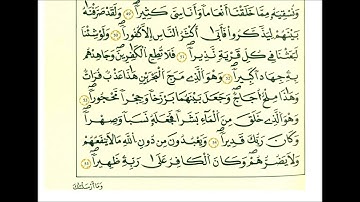 وَنُسْقِيَهُ مِمَّا خَلَقْنَا أَنْعَامًا وَأَنَاسِيَّ كَثِيرًا ٤٩ وَلَقَدْ صَرَّفْنَاهُ
بَيْنَهُمْ لِيَذَّكَّرُوا فَأَبَى أَكْثَرُ النَّاسِ إِلَّا كُفُورًا ٥٠ وَلَوْ شِئْنَا
لَبَعَثْنَا فِي كُلِّ قَرْيَةٍ نَذِيرًا ٥١ فَلَا تُطِعِ الْكَافِرِينَ وَجَاهِدْهُمْ
بِهِ جِهَادًا كَبِيرًا ٥٢ وَهُوَ الَّذِي مَرَجَ الْبَحْرَيْنِ هَذَا عَذْبٌ فُرَاتٌ
وَهَذَا مِلْحٌ أُجَاجٌ وَجَعَلَ بَيْنَهُمَا بَرْزَخًا وَحِجْرًا مَحْجُورًا ٥٣
وَهُوَ الَّذِي خَلَقَ مِنَ الْمَاءِ بَشَرًا فَجَعَلَهُ نَسَبًا وَصِهْرًا
وَكَانَ رَبُّكَ قَدِيرًا ٥٤ وَيَعْبُدُونَ مِنْ دُونِ اللَّهِ مَا لَا يَنْفَعُهُمْ
وَلَا يَضُرُّهُمْ وَكَانَ الْكَافِرُ عَلَى رَبِّهِ ظَهِيرًا ٥٥
وَمَا أَرْسَلْنَاكَ